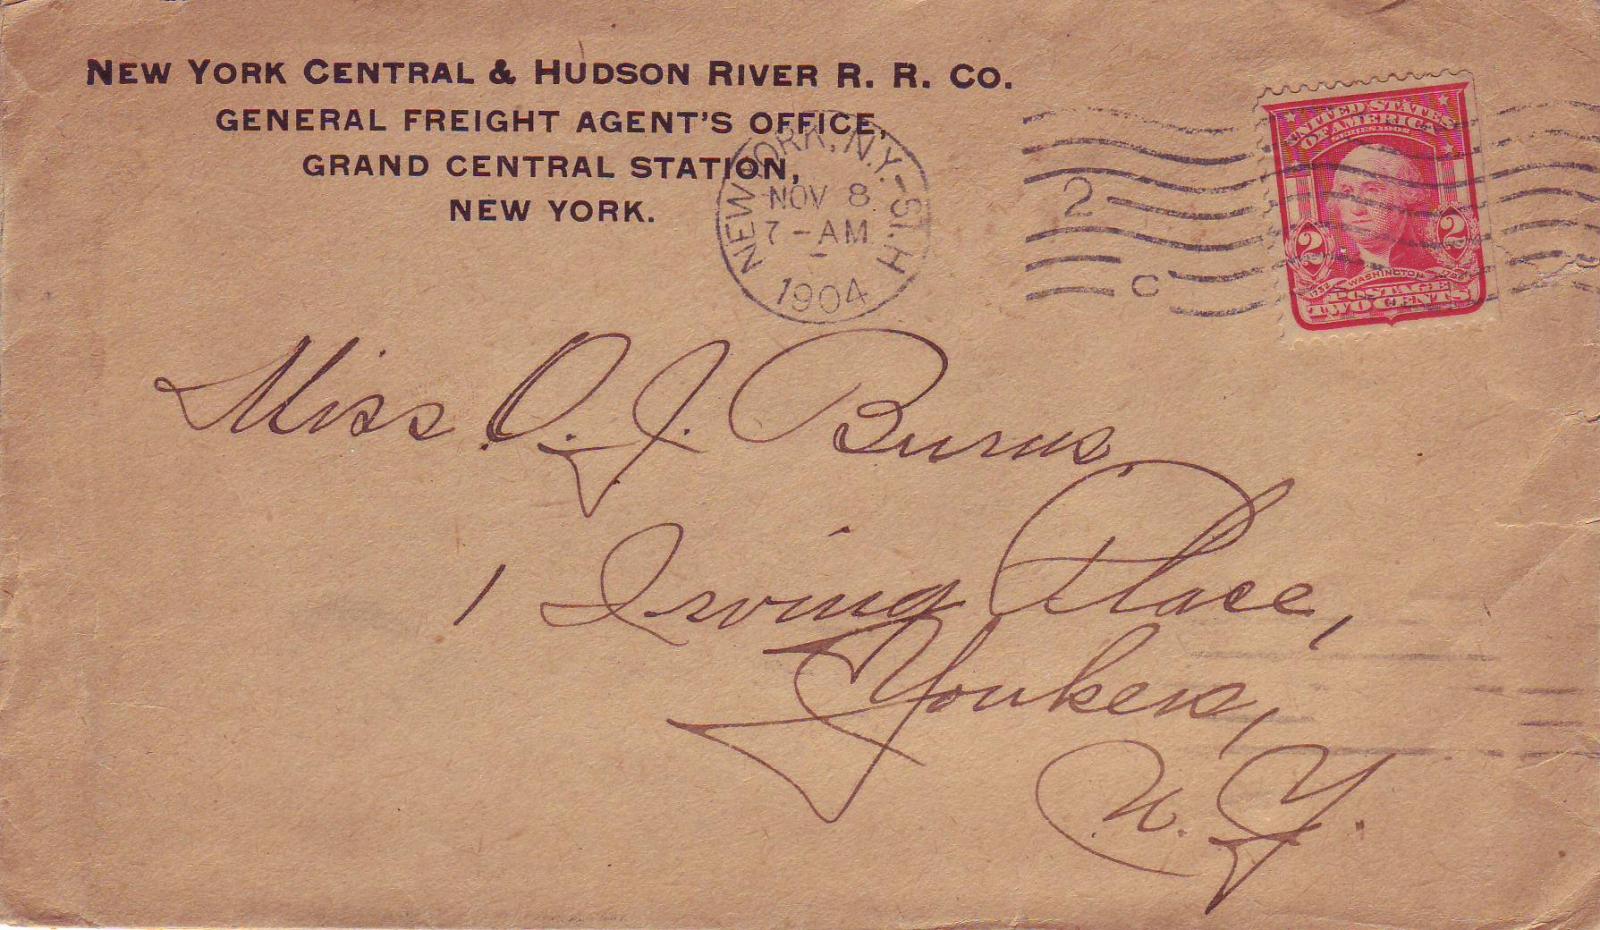 NEW YORK CENTRAL & HUDSON RIVER R. R. CO.
GENERAL FREIGHT AGENT'S OFFICE,
GRAND CENTRAL STATION,
NEW YORK.
NEW YORK, N.Y.-ST. H
NOV 8
7-AM
1904
2
C
UNITED STATES
OF AMERICA
SERIES 1902
2 2
1732 WASHINGTON 1799
POSTAGE
TWO CENTS
Miss O. J. Burns,
1 Irving Place,
Yonkers,
N. Y.